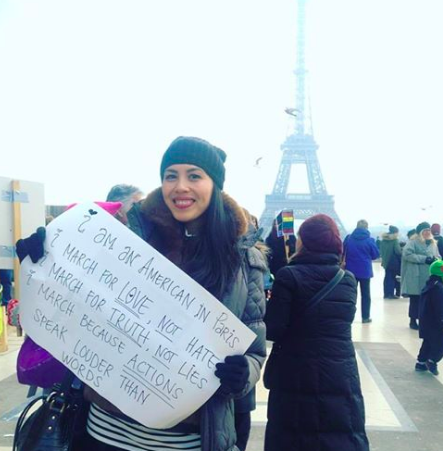 I am an American in Paris
I march for LOVE, not hate
I march for TRUTH, not lies
I march because ACTIONS
speak louder than
words